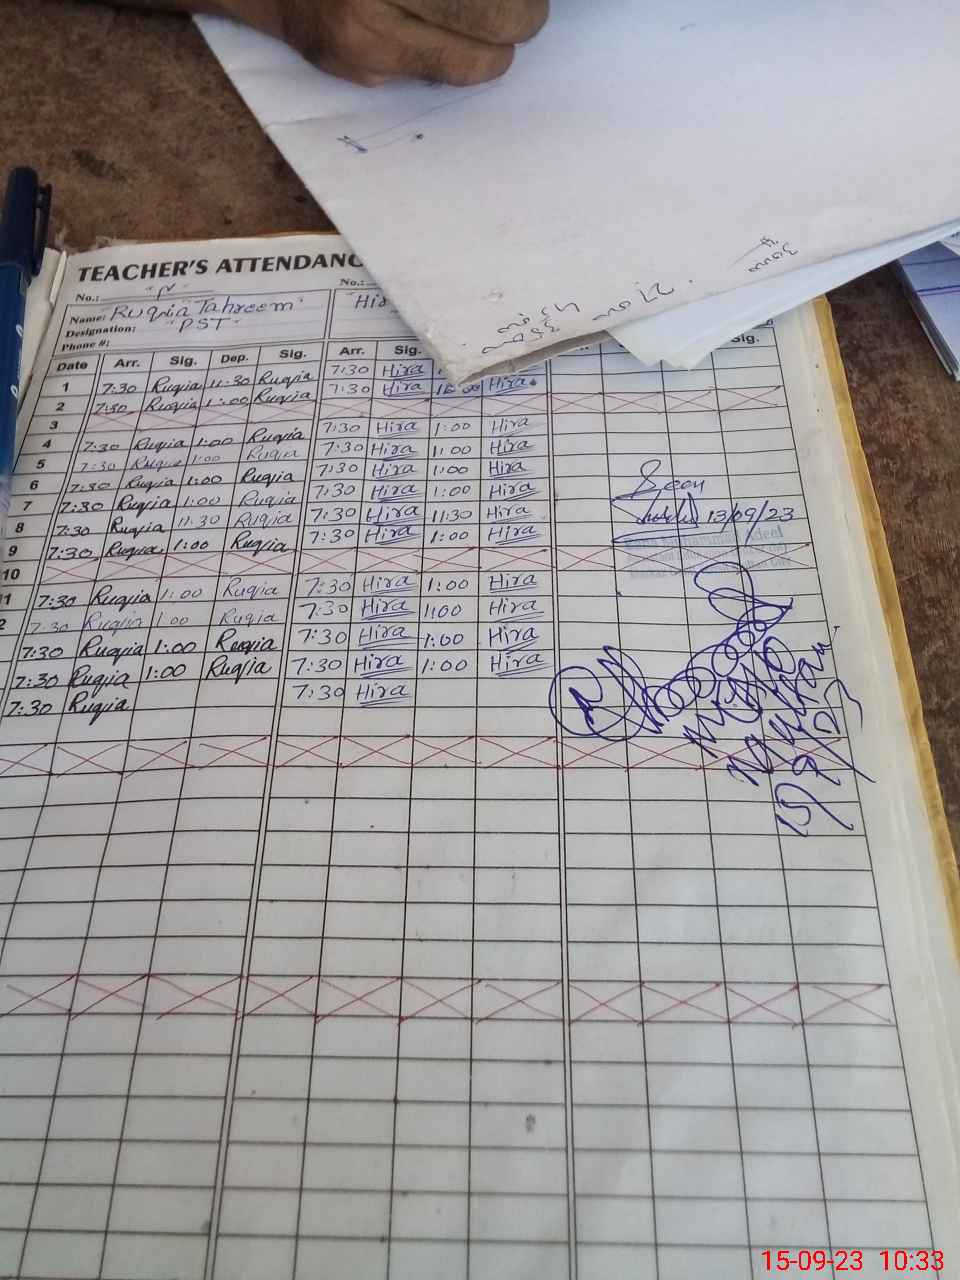 TEACHER'S ATTENDANC
No.: "N" No.:
Name: Ruqia Tahreem" "Hir
Designation: "PST"
Phone #:
Date Arr. Sig. Dep. Sig. Arr. Sig. Sig.
1 7:30 Ruqia 11:30 Ruqia 7:30 Hira
2 7:30 Ruqia 1:00 Ruqia 7:30 Hira Hira
3
4 7:30 Ruqia 1:00 Ruqia 7:30 Hira 1:00 Hira
5 7:30 Ruqia 1:00 Ruqia 7:30 Hira 1:00 Hira
6 7:30 Ruqia 1:00 Ruqia 7:30 Hira 1:00 Hira
7 7:30 Ruqia 1:00 Ruqia 7:30 Hira 1:00 Hira
8 7:30 Ruqia 11:30 Ruqia 7:30 Hira 11:30 Hira
9 7:30 Ruqia 1:00 Ruqia 7:30 Hira 1:00 Hira
10
11 7:30 Ruqia 1:00 Ruqia 7:30 Hira 1:00 Hira
2 7:30 Ruqia 1:00 Ruqia 7:30 Hira 1:00 Hira
7:30 Ruqia 1:00 Ruqia 7:30 Hira 1:00 Hira
7:30 Ruqia 1:00 Ruqia 7:30 Hira 1:00 Hira
7:30 Ruqia 7:30 Hira
Seen
13/09/23
Adeel
Multan
15/9/23
15-09-23 10:33